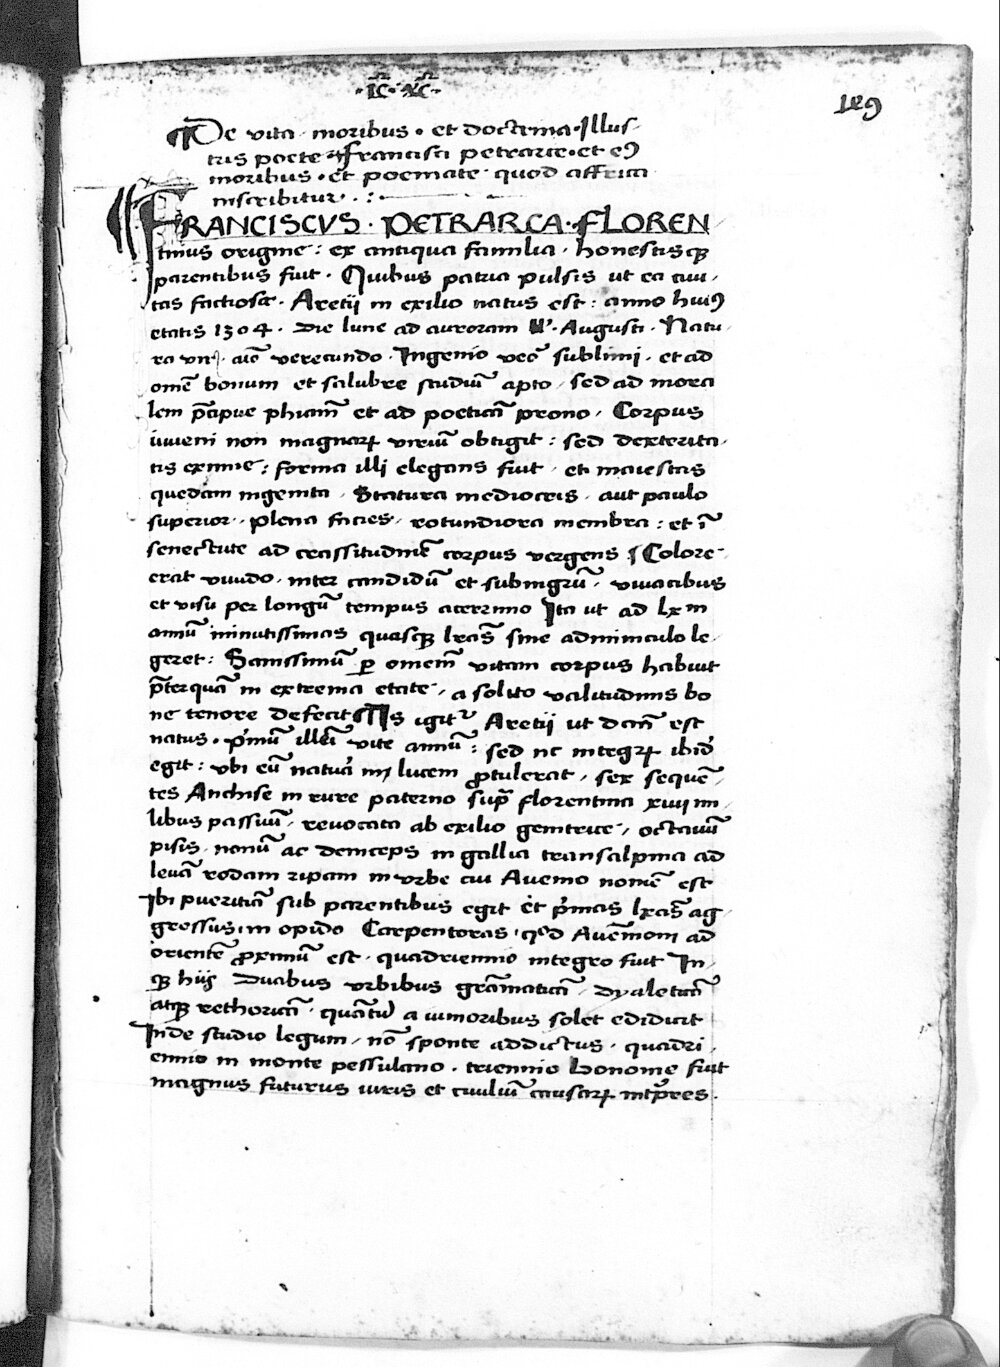 ·IC· XC·
149
De vita moribus · et doctrina · Illus-
tris poete Francisci petrarce · et eꝰ
moribus · et poemate quod affrica
inscribitur · . :
FRANCISCVS · PETRARCA · FLOREN
tinus origine : ex antiqua familia · honestisqꝫ
parentibus fuit · Quibus patria pulsis ut ea civi,
tas factiosa · Aretij in exilio natus est : anno huiꝰ
etatis 1304 · Die lune ad auroram · Augusti · Natu
ra verecundo · Ingenio sublimi · et ad
omē bonum et salubre studiū apto, sed ad mora
lem p̄cipue phiam̄ et ad poeticā prono, Corpus
iuveni non magnaꝝ viriū obtigit : sed dexterita,
tis eximie : forma illi elegans fuit, et maiestas
quedam ingenita, Statura mediocris, aut paulo
superior, plena facies, rotundiora membra : et ī
senectute ad crassitudinē corpus vergens Colore
erat vivido, inter candidū et subnigrū, vivacibus
et visu per longū tempus acerrimo Ita ut ad lxm
annū minutissimas quasqꝫ lr̄as sine adminiculo le-
geret : Sanissimū ꝑ omem̄ vitam corpus habuit
p̄terquā in extrema etate, a solito valitudinis bo
ne tenore defecit Is igitᷣ Aretij ut dcm̄ est
natus · pʳmū vite annū : sed nc integꝝ ibidʼ
egit : vbi eū natura in lucem ꝓtulerat, sex sequē-
tes Anchise in rure paterno supᵃ florentina xiiii mi,
libus passuū, revocata ab exilio genitrice, octavū
pisis, nonū ac deinceps in gallia transalpina ad
levā rodani ripam in vrbe cui Avemo nomē est
Ibi pueritiā sub parentibus egit et pʳmas lr̄as ag-
gressus, in opido Carpentoras, qᵒd Avēnioni ad
orientē ꝓximū est, quadriennio integro fuit In,
qꝫ hijs Duabus vrbibus grāmaticā, Dyaleticā
atqꝫ rethoricā, quātū a iunioribus solet edidicit
Inde studio legum, nō sponte addictus, quadri,
ennio in monte pessulano, triennio bononie fuit
magnus futurus iuris et civiliū causaꝝ intꝑres.